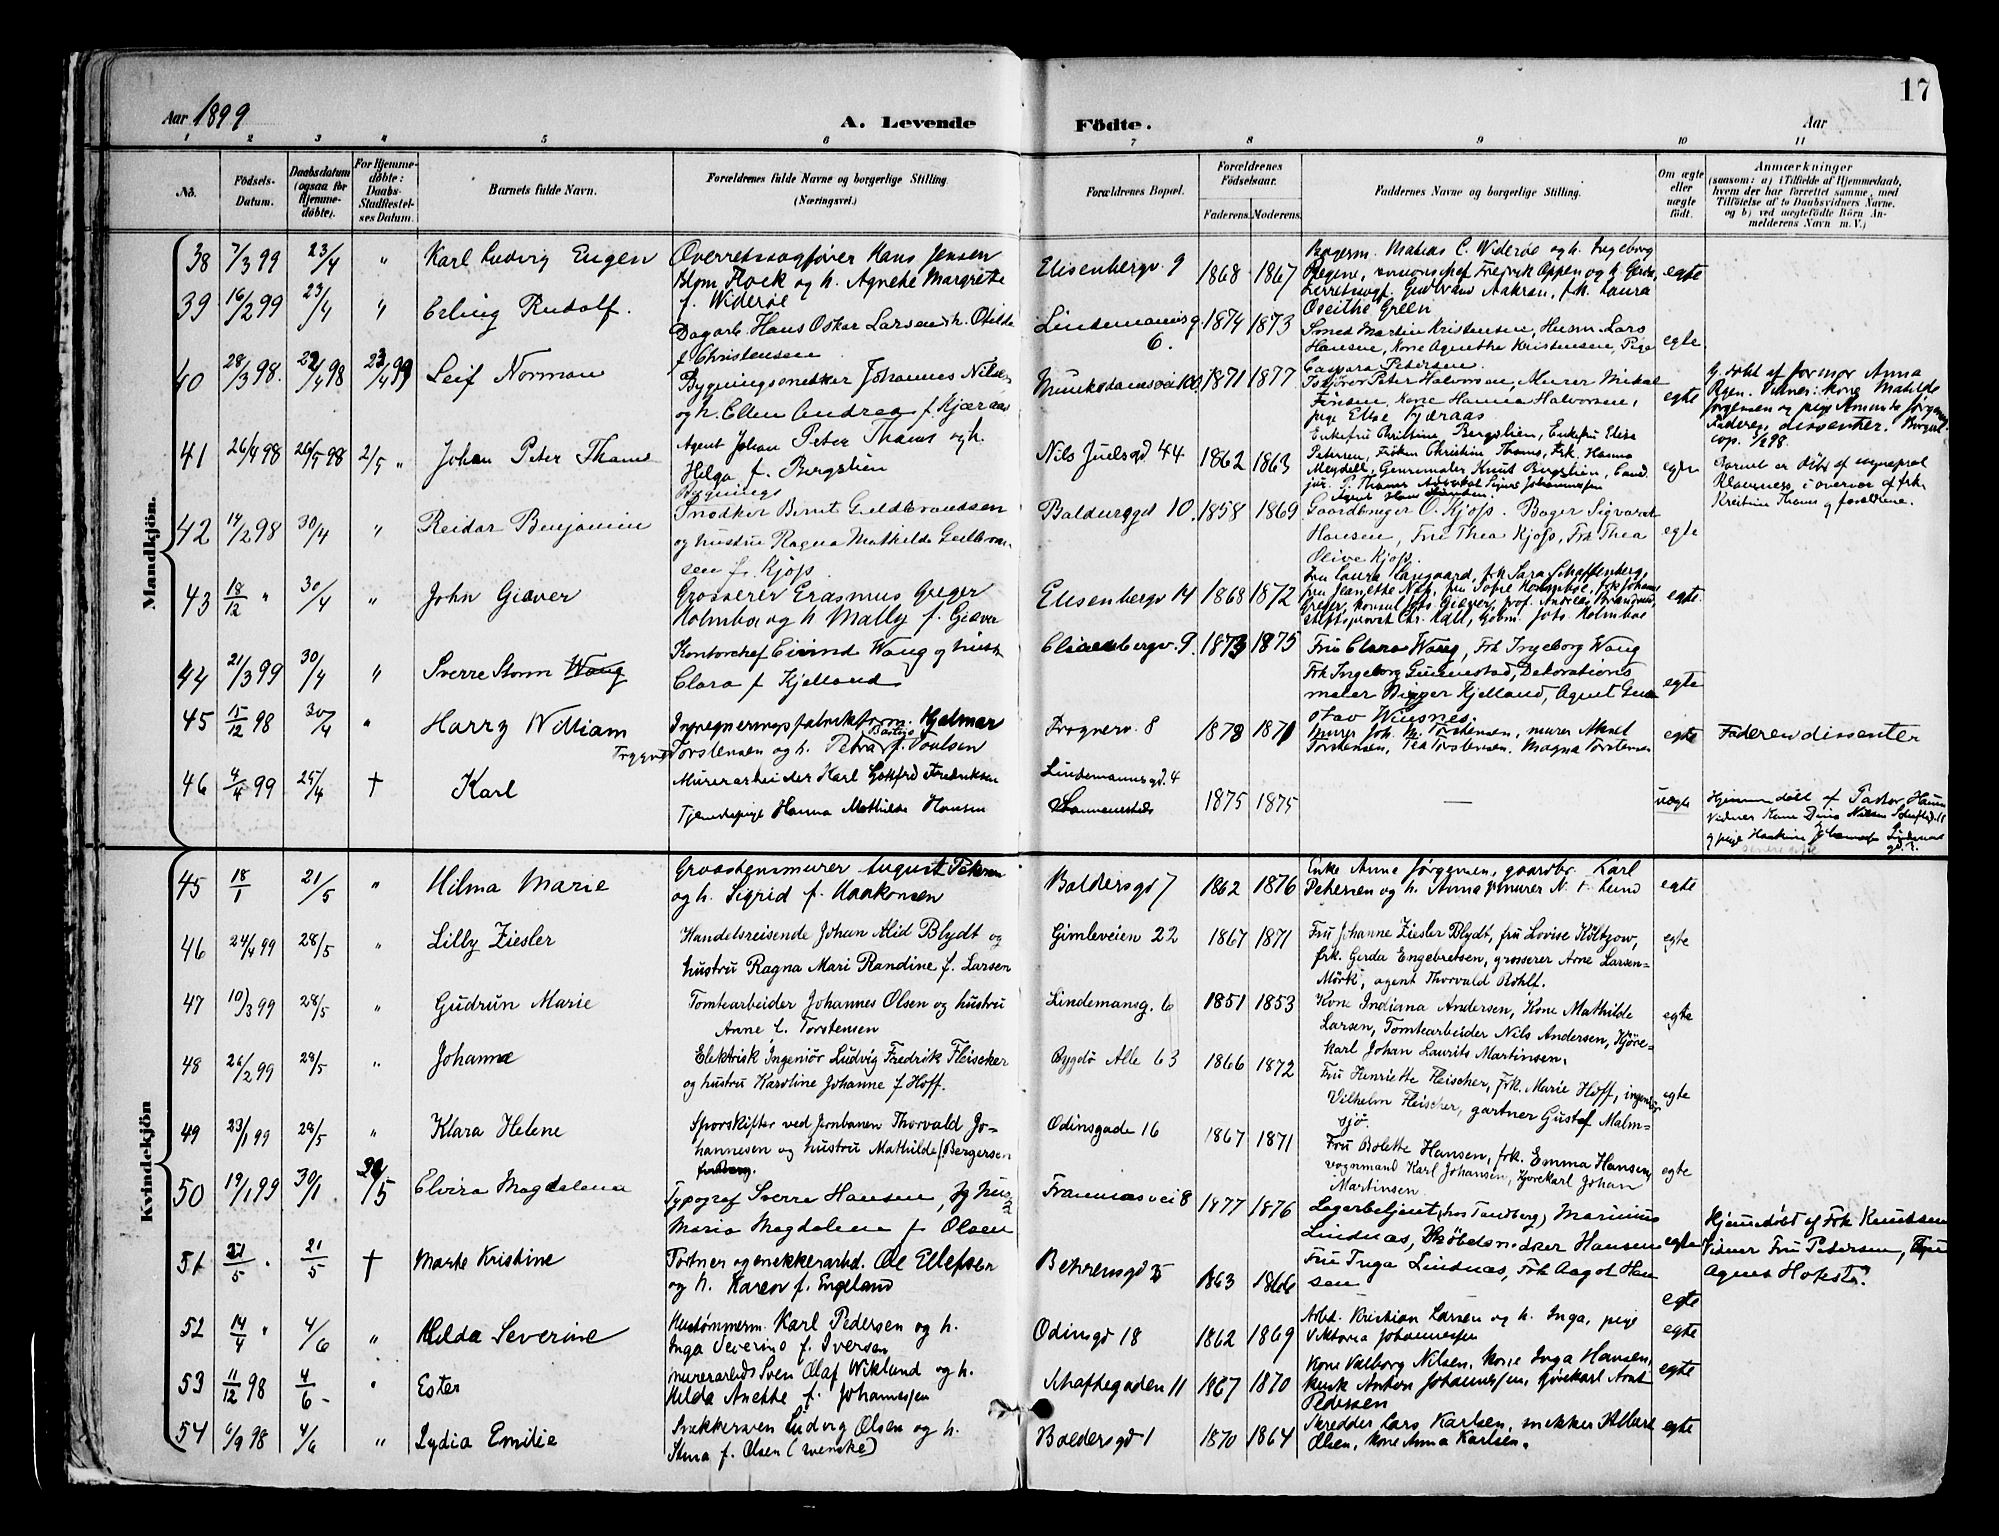 Aar 1899
A. Levende Födte.
Aar
17
1 2 3 4 5 6 7 8 9 10 11
No.
Födsels-Datum.
Daabsdatum (ogsaa for Hjemme-döbte).
For Hjemme-döbte: Daabs-Stadfæstel-ses Datum.
Barnets fulde Navn.
Forældrenes fulde Navne og borgerlige Stilling. (Næringsvei.)
Forældrenes Bopæl.
Forældrenes Födselsaar.
Faderens. Moderens.
Faddernes Navne og borgerlige Stilling.
Om ægte eller uægte födt.
Anmærkninger
(saasom: a) i Tilfælde af Hjemmedaab,
hvem der har forrettet samme, med
Tilföielse af to Daabsvidners Navne.
og b) ved uegtefödte Börn An-
melderens Navn m. V.)
Mandkjön.
38 7/3 99 23/4 " Karl Ludvig Eugen Overretssagfører Hans Jensen Elisenbergv 9 1868 1867 egte
Blom Hock og h. Agnethe Margrete f. Widerøe
Bagerm. Mathias C. Widerøe og h. Ingeborg
39 16/2 99 23/4 " Erling Rudolf. Dagarb. Hans Oskar Larsen h. Otilde f Christensen Lindemannsg 6. 1874 1873 egte
Smed Martin Kristensen, Husm Lars
Hansen, Kone Agnethe Kristensen, Pige
Petersen
40 28/3 98. 23/4 99 Leif Norman Bygningssnedker Johannes Nilsen Munkedamsvei 100 1871 1877 egte
og h. Ellen Andrea f. Kjæraas
Peter Halvorsen, Murer
Kone Hanna Halvorsen,
pige Elise Kjæraas
Hj. døbt af formor Anna
Vidner: kone Mathilde
Jørgensen og pige
dissenter.
41 26/4 98 2/5 " Johan Peter Thams Agent Johan Peter Thams og h. Nils Juelsgd 44 1862 1863 egte
Helga f. Bergslien
Enkefru Christine Bergslien, Enkefru Elise
Petersen, Frøken Christine Thams, Frk. Hanna
Meydell, Genremaler Knut Bergslien, Cand
jur. P. Thams Advokat Sigurd Johannessen
Agent Hans
Barnet er døbt af sogneprest
Klaveness, i overvær af frk.
Kristine Thams og forældrene.
42 14/2 98 30/4 " Reidar Benjamin Bygnings Snedker Bernt Guldbrandsen Baldersgd 10. 1858 1869 egte
og hustru Ragna Mathilde Gulbran-
sen f. Kjøss.
Gaardbruger O. Kjøss. Bager Sigvart
Hansen, Fru Thea Kjøss, Frk Thea
Olive Kjøss.
43 18/12 " 30/4 " John Giæver Grosserer Erasmus Greger Elisenbergv 14 1868 1872 egte.
Holmboe og h Mally f. Giæver
Fru Laura frk Sara Schaffenberg,
konsul Johs Giæver, prof. Andreas
stiftsprovst Chr. Hall, Johs Holmboe
44 21/3 99 30/4 " Sverre Storm Wang Kontorchef Eivind Wang og hust Elisenbergv. 9. 1873 1875 egte
Clara f Kjelland
Fru Clara Wang, Frk Ingeborg Wang
Frk Ingeborg Gunnestad, Dekorations
maler Kjelland, Agent Gu-
stav Winsnes.
45 15/12 98 30/4 " Harry William Trygve Impregneringsfabrikform. Hjalmar Frognerv. 8 1878 1871 egte Faderen dissenter
Torstensen og h. Petra f. Poulsen
Murer Joh. M. Torstensen, murer Aksel
Torstensen, Tea Torstensen. Magna Torstensen
46 9/4 99 25/4 † Karl Murerarbeider Karl Gotfred Fredriksen Lindemannsgd. 4 1875 1875 — uægte
Tjenestepige Hanna Mathilde Hansen
Hjemmedøbt af Pastor
Vidner Kone Nilsen
Kvindekjön
45 18/1 21/5 " Hilma Marie Graastensmurer August Petersen Baldersgd 7 1862 1876 egte
og h. Sigrid f. Haakonsen
Enke Anne Jørgensen, gaardbr. Karl
Petersen og h. Anna murer N. Lund
46 24/4 99 28/5 " Lilly Ziesler Handelsreisende Johan Mid Blydt og Gimleveien 22 1867 1871 egte
hustru Ragna Mari Randine f. Larsen
Fru Johanne Ziesler Blydt, fru Lovise Költzow,
frk. Gerda Engebretsen, grosserer Arne Larsen-
Mörk, agent Thorvald Rohlt.
47 10/3 99 28/5 " Gudrun Marie Tomtearbeider Johannes Olsen og hustru Lindemansg. 6 1851 1853 egte
Anne L. Torstensen
Kone Indiana Andersen, Kone Mathilde
Larsen, Tomtearbeider Nils Andersen, Kjöre-
karl Johan Laurits Martinsen.
48 26/2 99 28/5 " Johanne Elektrisk Ingeniör Ludvig Fredrik Fleischer Bygdø Alle 63 1866 1872 egte
og hustru Karoline Johanne f. Hoff.
Fru Henriette Fleischer, Frk. Marie Hoff, ingeniør
Vilhelm Fleischer, gartner Gustaf Malm-
sjö.
49 23/1 99 28/5 " Klara Helene Sporskifter ved Jernbanen Thorvald Jo- Odinsgade 16 1867 1871 egte
hannesen og hustru Mathilde f Bergersen
Fru Bolette Hansen, frk. Emma Hansen,
vognmand Karl Johansen, Kjörekarl Johan
Martinsen.
50 19/1 99 30/1 28/5 Elvira Magdalena Typograf Sverre Hansen, og hus Framnæsvei 8 1877 1876 egte
Maria Magdalene f Olsen
Lagerbetjent, (hos Tandberg) Marinius
Lindnæs, Møbelsnedker Hansen
Fru Inga Lindnæs, Frk Aagot Han
sen
Hjemmedøbt af Frk Knutsen
Vidner Fru Petersen,
Agnes
51 21/5 " 21/5 † Marte Kristine Portner og snekkerarbd. Ole Ellefsen Behrensgd 5 1863 1866 egte
og h. Karen f. Engeland
52 14/4 " 4/6 " Hilda Severine Hustömmerm. Karl Pedersen og h. Odinsgd 18 1862 1869 egte
Inga Severine f. Iversen
Arbd. Kristian Larsen og h. Inga, pige
Viktoria Johannessen
53 11/12 98 4/6 - " Ester Murerarbds Sven Olaf Wiklund og h. Schaftegaden 11 1867 1870 egte
Hilda Anette f. Johannessen
Kone Valborg Nilsen, Kone Inga Hansen,
Anton Johannessen, Kjörekarl Arnt
Pedersen
54 6/9 98 4/6 " Lydia Emilie Snekkersven Ludvig Olsen og h. Baldersgd 1 1870 1864 egte
Stina f. Olsen (svenske)
Skredder Lars Karlsen, snekker
Olsen, Kone Anna Karlsen.